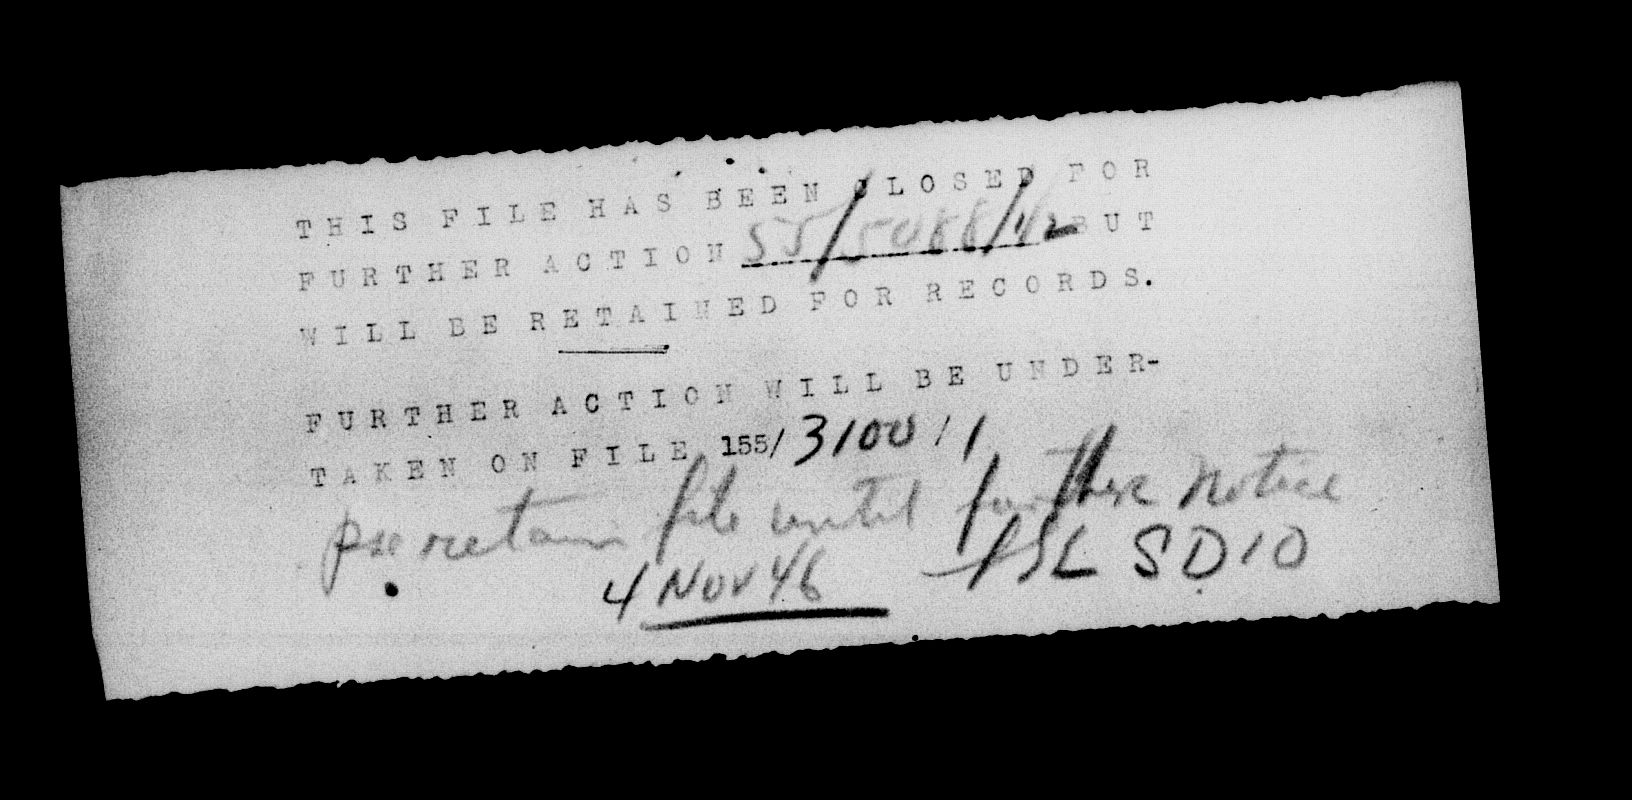 THIS FILE HAS BEEN CLOSED FOR
FURTHER ACTION 55/5088/42 BUT
WILL BE RETAINED FOR RECORDS.
FURTHER ACTION WILL BE UNDER-
TAKEN ON FILE 155/3100/1
pse retain file until further notice
4 Nov 46 SD10